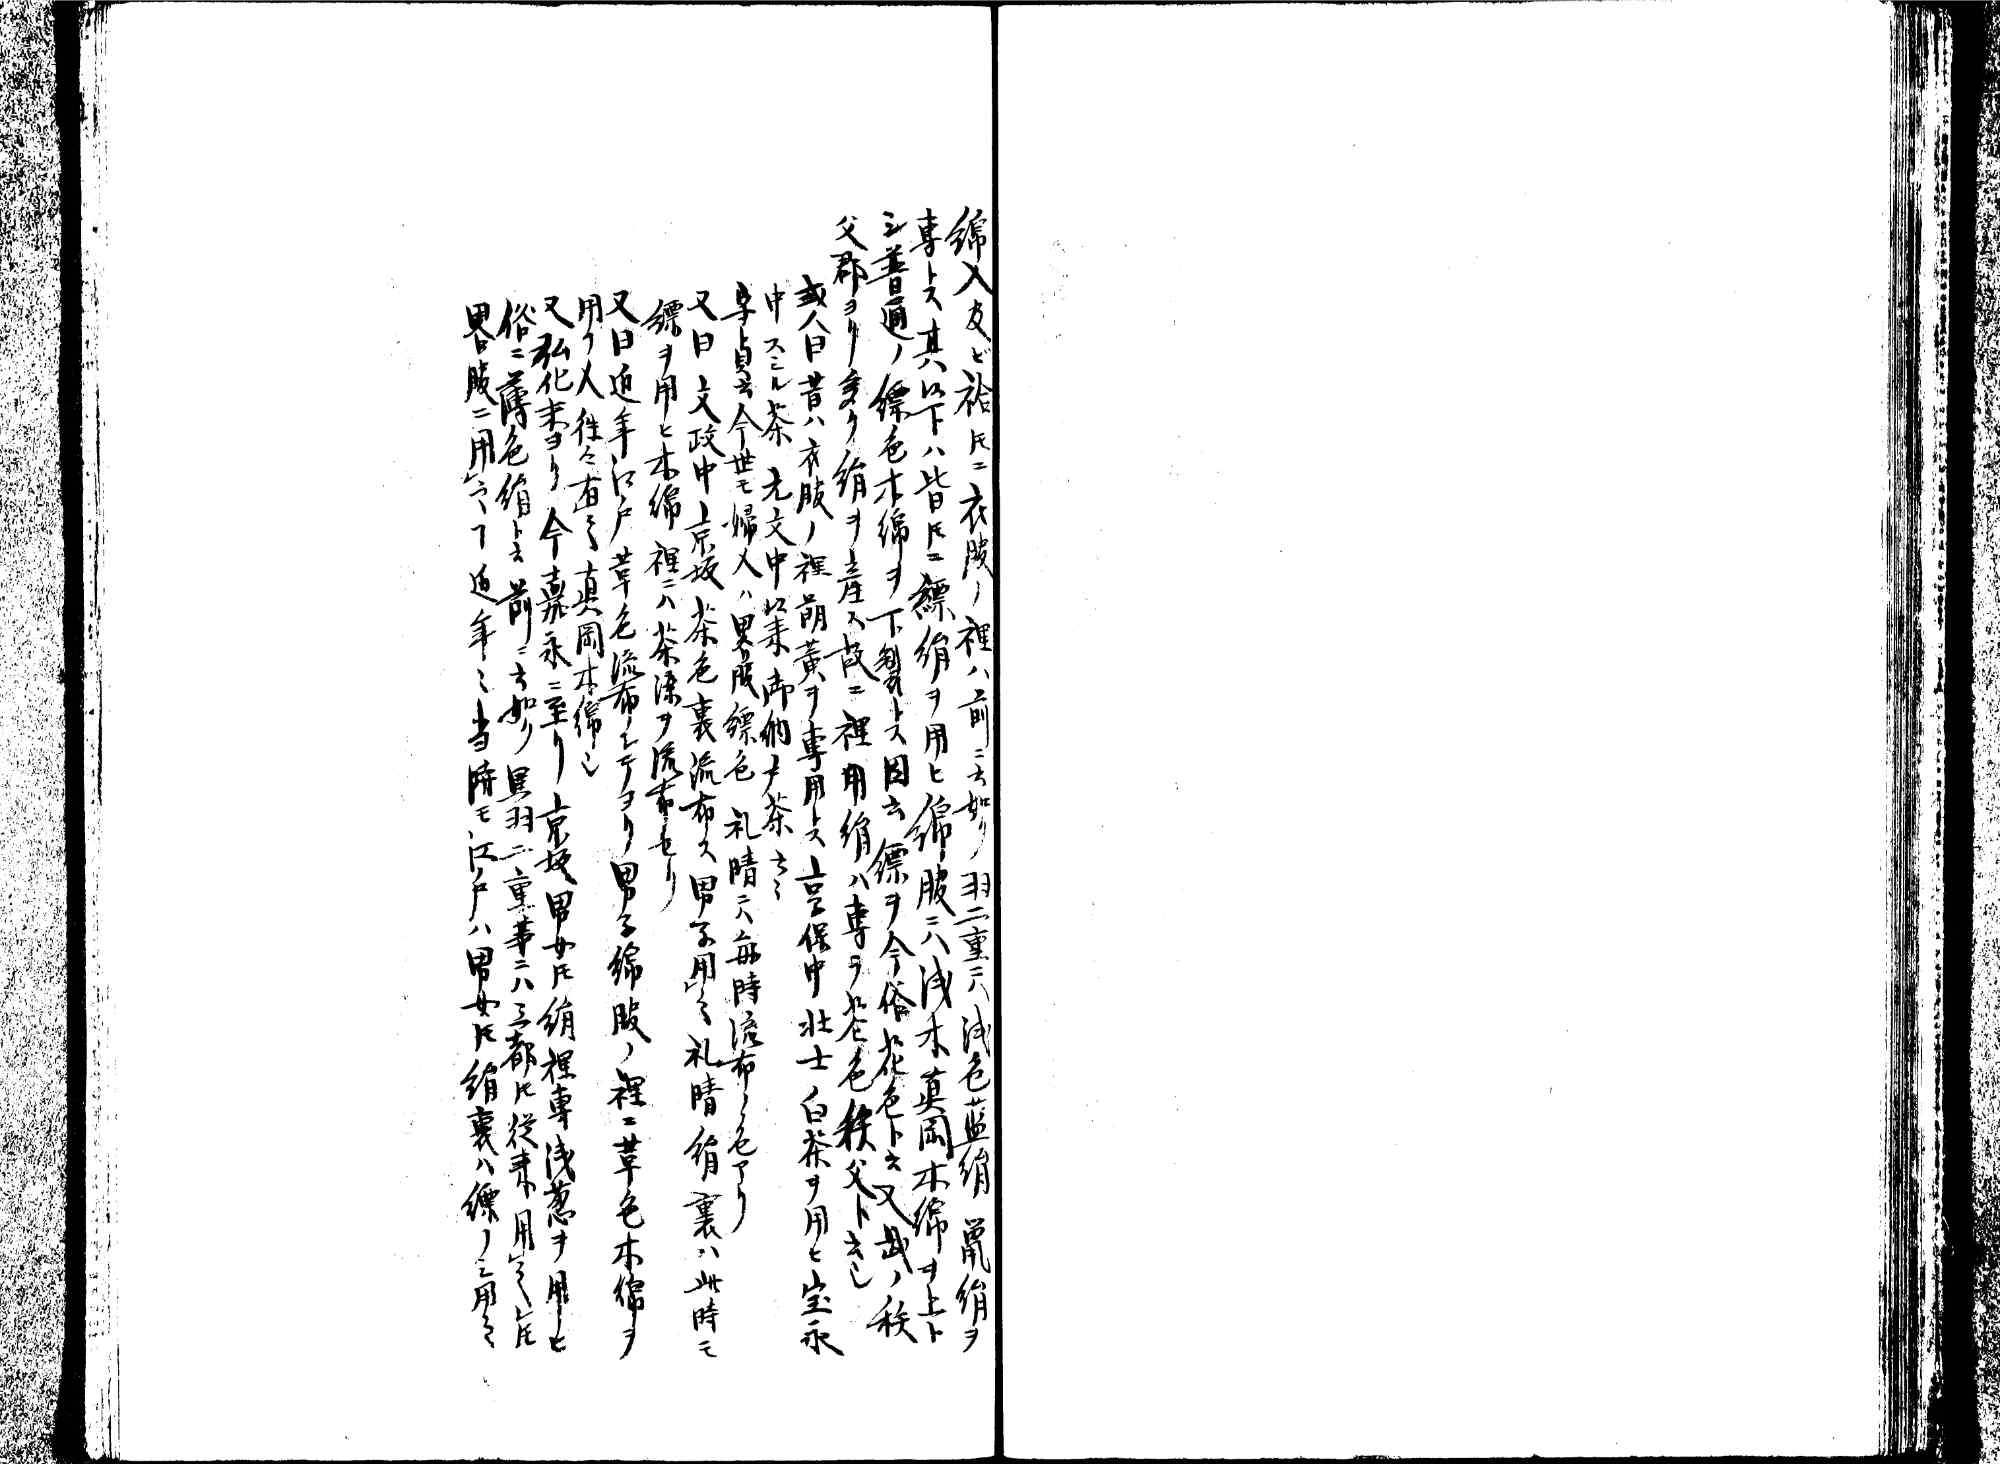 綿入及ビ袷トモニ衣服ノ裡ハ前ニ云如ク羽二重ニハ浅色藍絹鼠絹ヲ
専トス其以下ハ皆トモニ縹絹ヲ用ヒ綿服ニハ浅木真岡木綿ヲ上ト
シ普通ノ縹色木綿ヲ下製トス因云縹ヲ今俗花色ト云又武ノ秩
父郡ヨリ多ク絹ヲ産ス故ニ裡用絹ハ専ラ花色秩父ト云也
或人曰昔ハ衣服ノ裡萌黄ヲ専用トス享保中壮士白茶ヲ用ヒ宝永
中スミル茶元文中以来御納戸茶云々
守貞云今世モ婦人ハ男服縹色礼晴ニハ毎時流布ノ色アリ
又曰文政中京坂茶色裏流布ス男子用之礼晴絹裏ハ此時モ
縹ヲ用ヒ木綿裡ニハ茶染ヲ流布セリ
又曰近年江戸草色流布シテヨリ男子綿服ノ裡ニ草色木綿ヲ
用フ人往々有之真岡木綿也
又弘化末ヨリ今嘉永ニ至リ京坂男女トモ絹裡専浅葱ヲ用ヒ
俗ニ薄色絹ト云前ニ云如ク黒羽二重等ニハ三都トモ従来用之トモ
略服ニ用フコト近年ミ当時モ江戸ハ男女トモ絹裏ハ縹ノミ用之